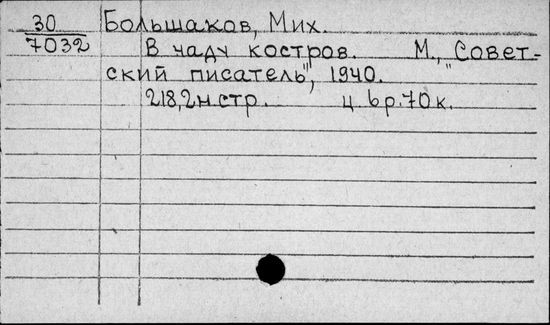 30 Большаков, Мих.
7032 В чаду костров. М., "Совет-
ский писатель", 1940.
218,2н.стр. ц. 6р.70к.